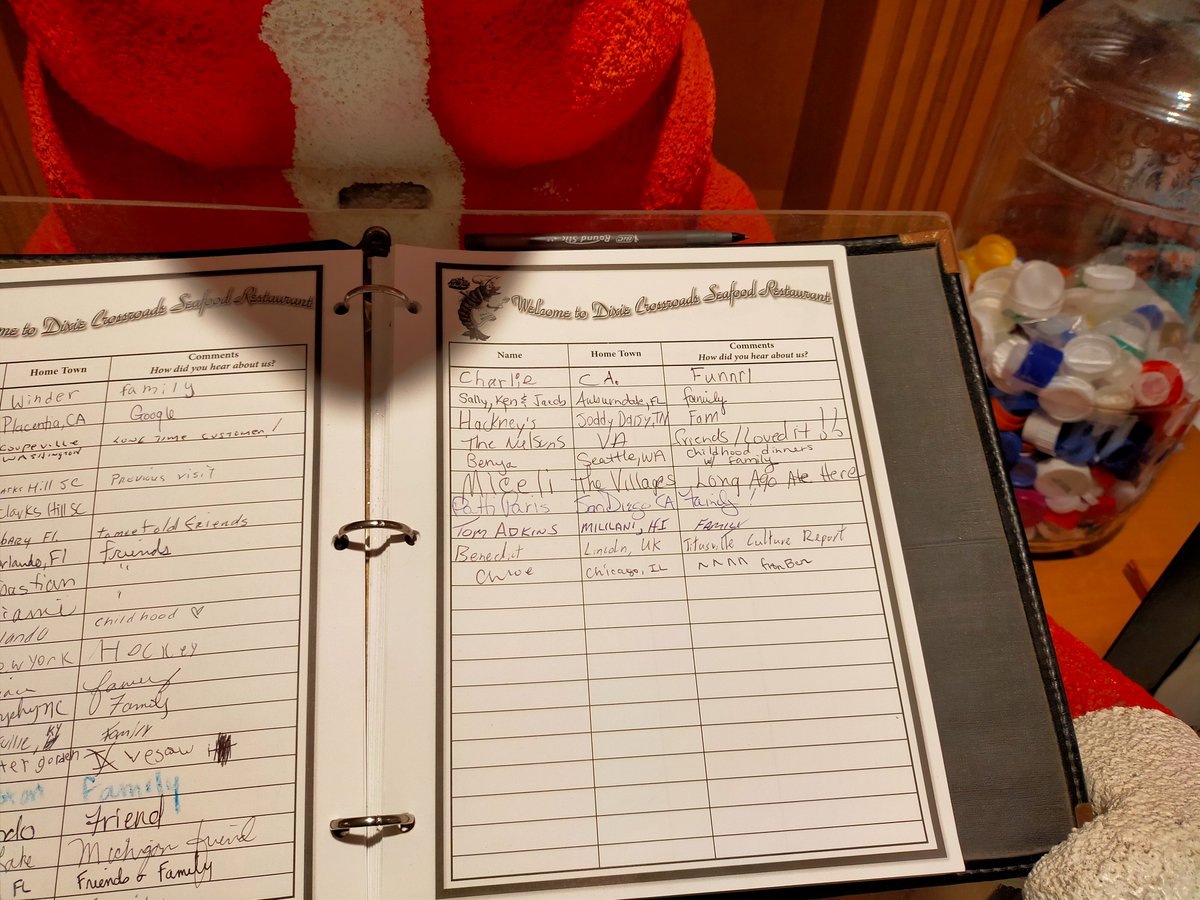 BIC Round Stic
me to Dixie Crossroads Seafood Restaurant
Home Town Comments How did you hear about us?
Winder family
Placentia, CA Google
Coupeville WASHINGTON LONG TIME CUSTOMER!
arks Hill SC Previous visit
Clarks Hill SC
BARY FL Friends
orlando, FL Friends "
bastian "
iami childhood ♡
lando
ew YORK HOCKEY
NC Family
KY Family
ter garden vegan
Family
ndo Friend
Lake Michigan friend
FL Friends & Family
Welcome to Dixie Crossroads Seafood Restaurant
Name Home Town Comments How did you hear about us?
Charlie C.A. Funnrl
Sally, Ken & Jacob Auburndale, FL family
Hackney's Soddy Daisy, TN Fam
The Nelsons VA friends / Loved it !!
Benya Seattle, WA childhood dinners w/ family
Miceli The Villages Long Ago Ate Here
Patti Paris San Diego CA Family!
TOM ADKINS MILILANI, HI FAMILY
Benedict Lincoln, UK Titusville Culture Report
Chloe Chicago, IL ^^^^ from Ben